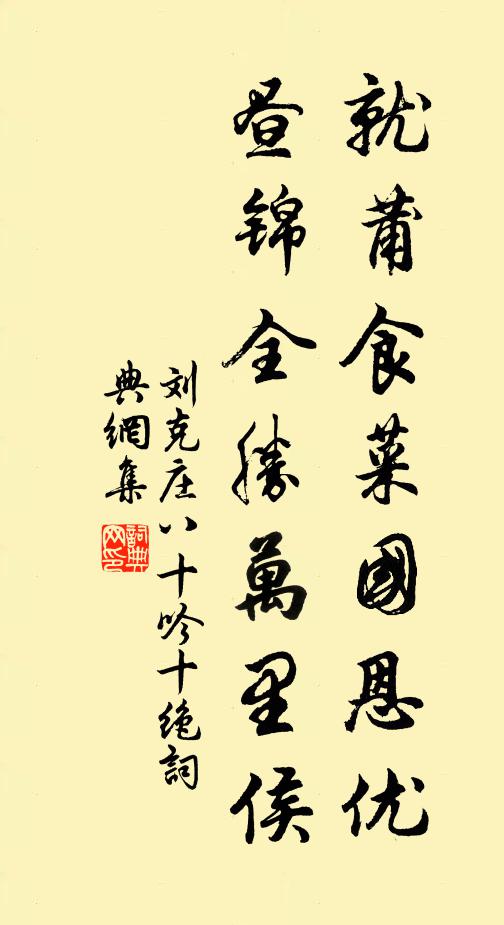 就莆食菜國恩优
昼锦全勝萬里侯
刘克庄八十吟十绝詞
典網集
詞典
网印